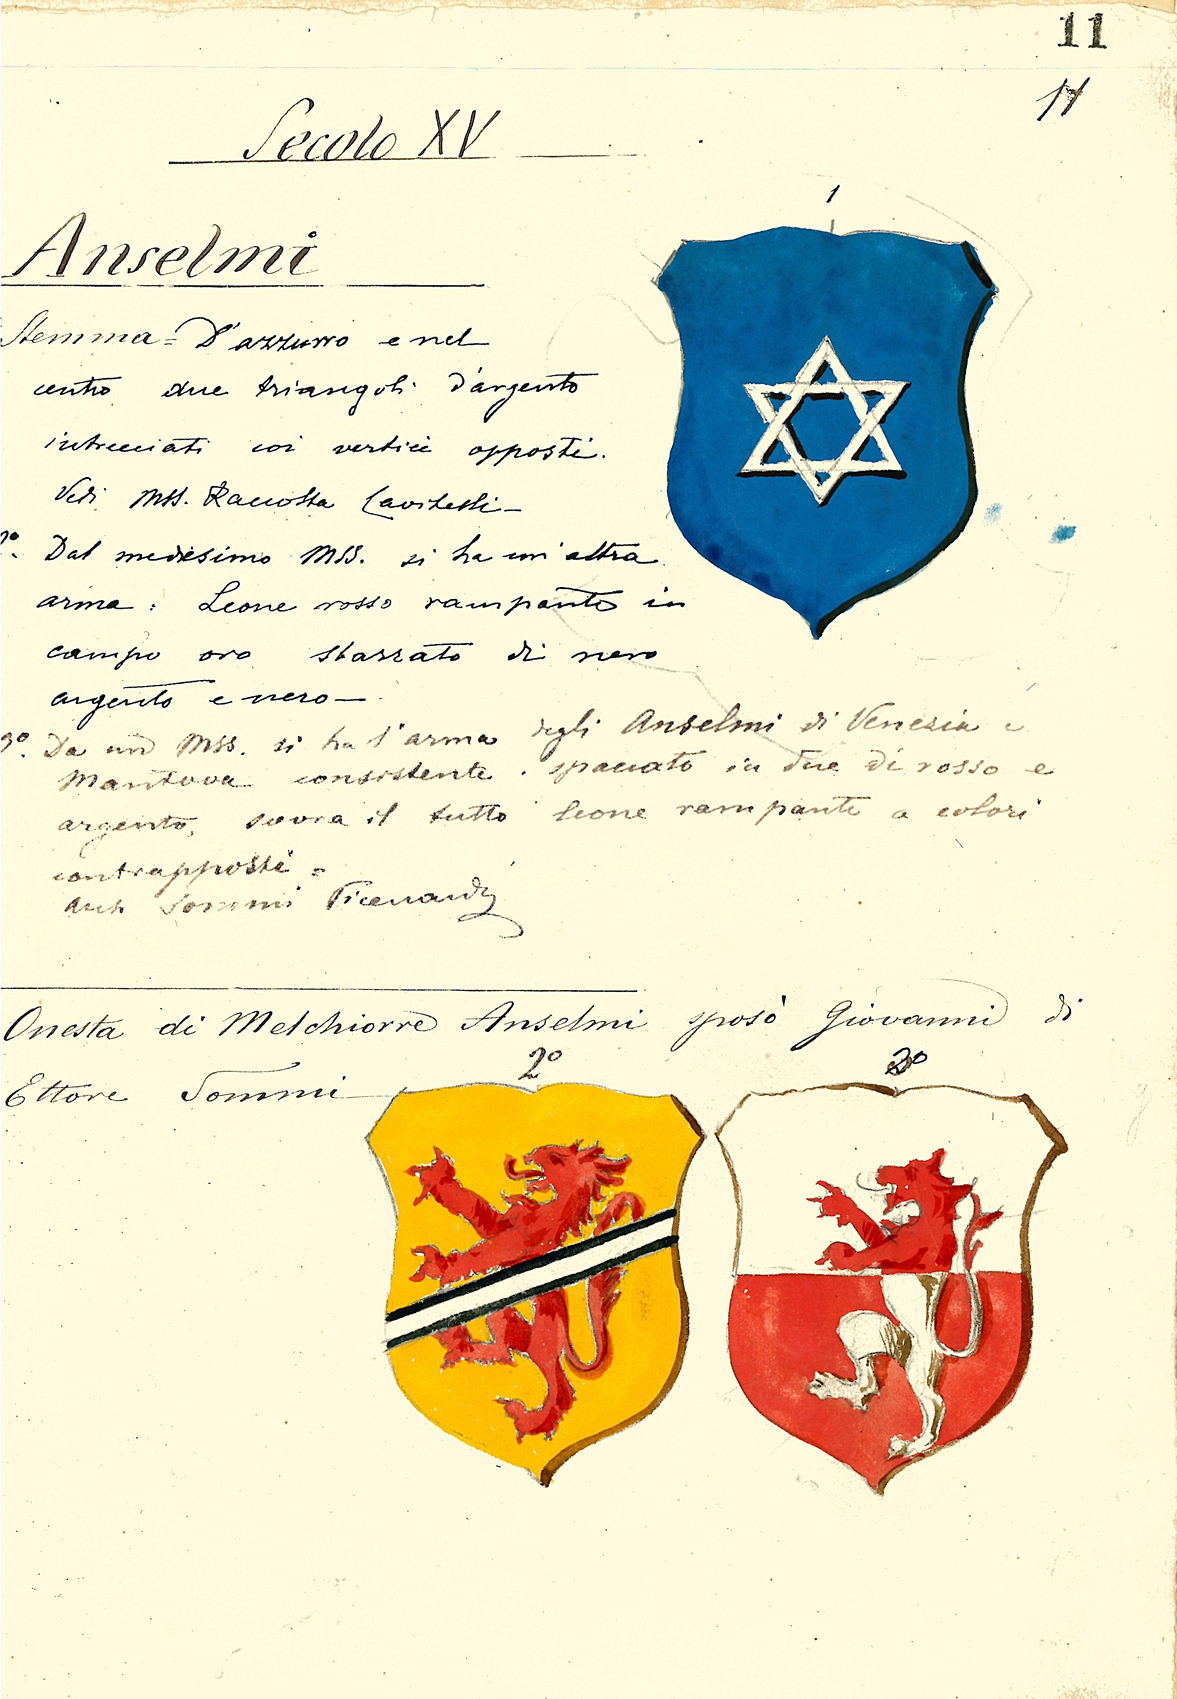 11
11
Secolo XV
1
Anselmi
Stemma = D'azzurro e nel
centro due triangoli d'argento
intrecciati coi vertici opposti.
Vedi MSS. Raccolta Cavitelli—
2º. Dal medesimo MSS. si ha un'altra
arma: Leone rosso rampante in
campo oro sbarrato di nero
argento e nero—
3º. Da un MSS. si ha l'arma degli Anselmi di Venezia e
Mantova consistente. spaccato in due di rosso e
argento, sovra il tutto leone rampante a colori
contrapposti =
Arch Sommi Picenardi
Onesta di Melchiorre Anselmi sposò Giovanni di
Ettore Sommi
2º
3º